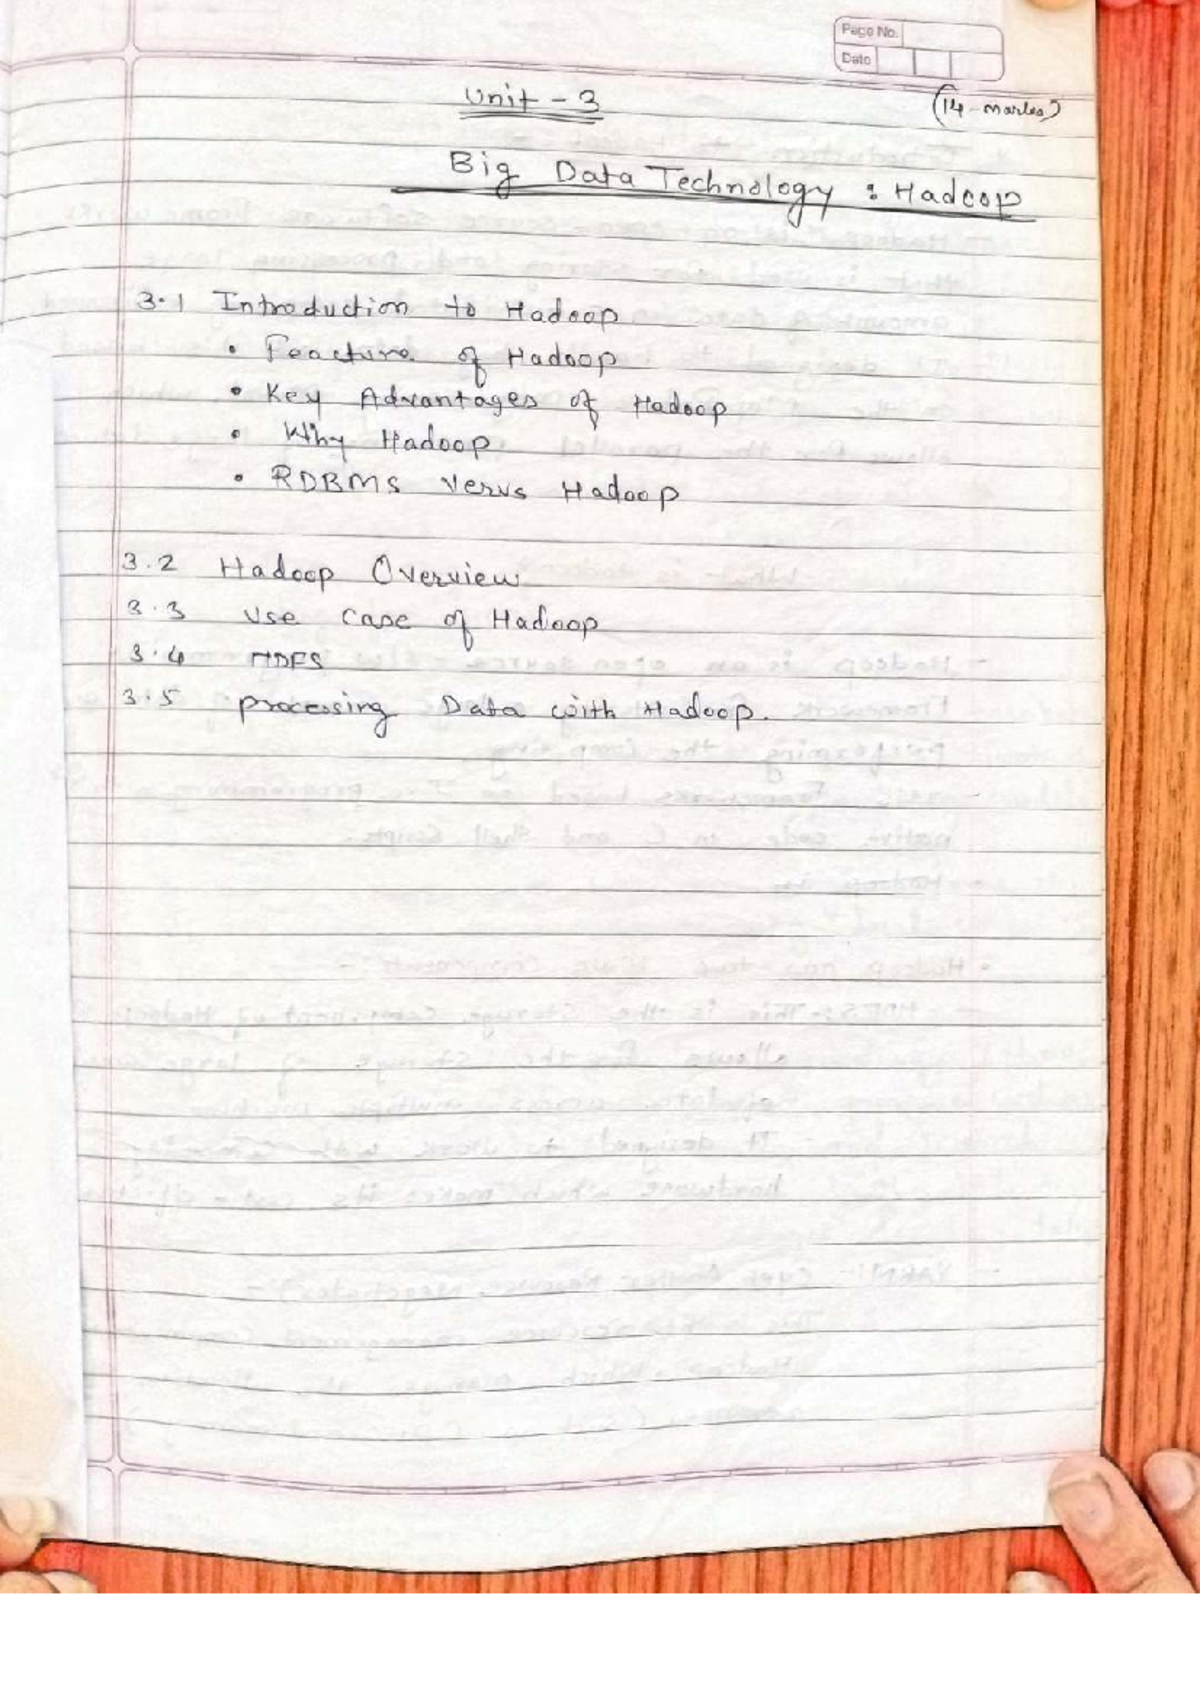 Page No.
Date
Unit - 3
(14 - marks)
Big Data Technology : Hadoop
3.1 Introduction to Hadoop
• Feacture of Hadoop
• Key Advantages of Hadoop
• Why Hadoop
• RDBMS Verus Hadoop
3.2 Hadoop Overview
3.3 Use Case of Hadoop
3.4 HDFS
3.5 processing Data with Hadoop.